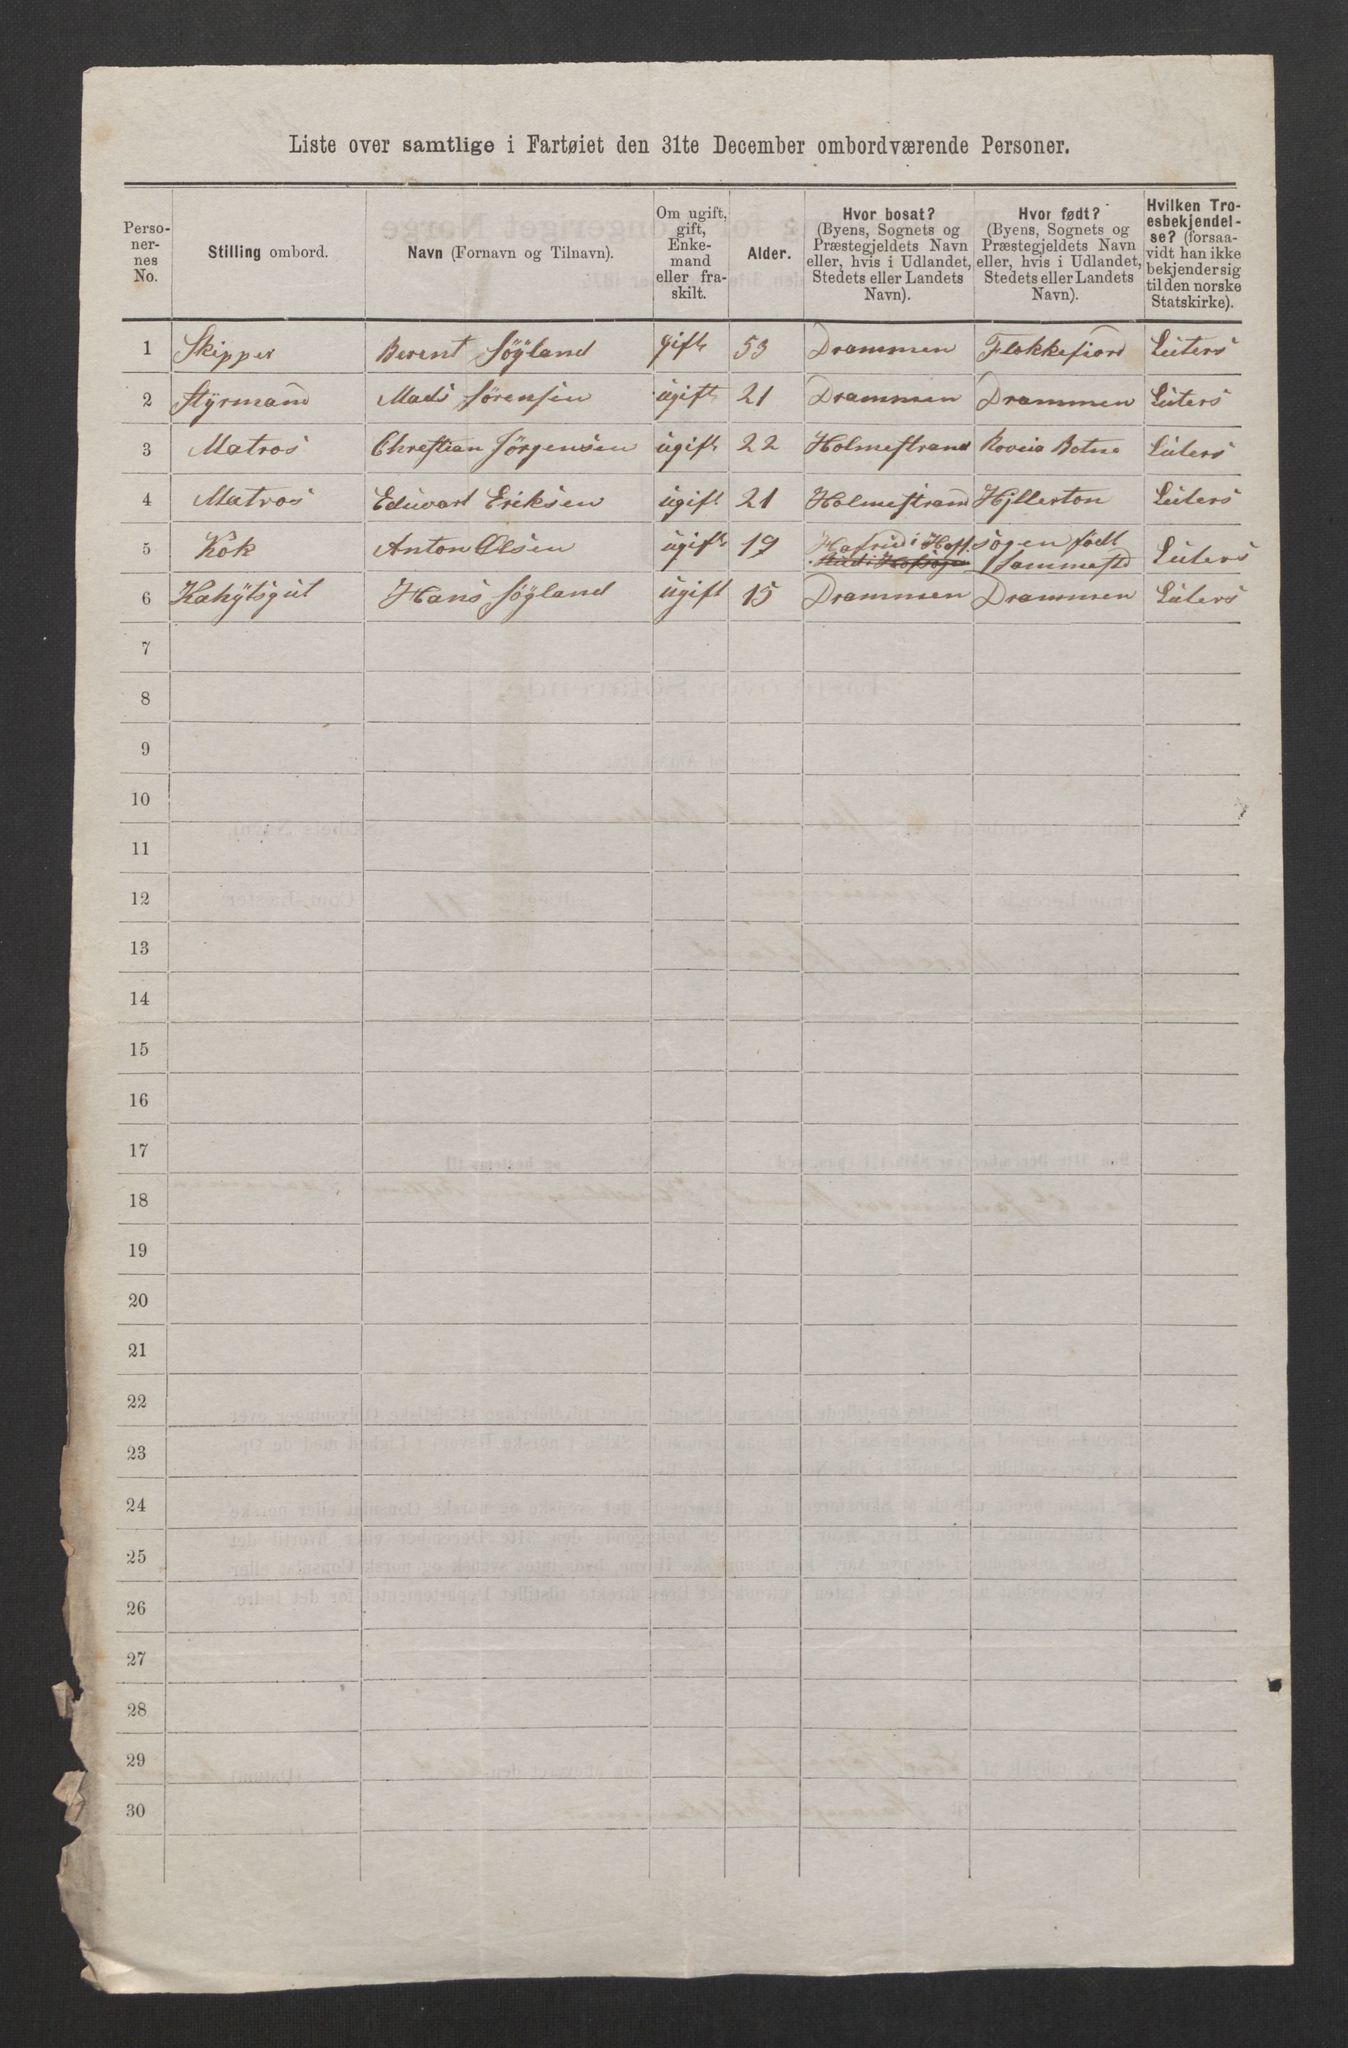 Liste over samtlige i Fartøiet den 31te December ombordværende Personer.
Perso-
ner-
nes
No.
Stilling ombord.
Navn (Fornavn og Tilnavn).
Om ugift,
gift,
Enke-
mand
eller fra-
skilt.
Alder.
Hvor bosat?
(Byens, Sognets og
Præstegjeldets Navn
eller, hvis i Udlandet,
Stedets eller Landets
Navn).
Hvor født?
(Byens, Sognets og
Præstegjeldets Navn
eller, hvis i Udlandet,
Stedets eller Landets
Navn).
Hvilken Tro-
esbekjendel-
se? (forsaa-
vidt han ikke
bekjender sig
til den norske
Statskirke).
1 Skipper Berent Søyland gift 53 Drammen Flekkefiord Luters
2 Styrmand Mads Sørensen ugift 21 Drammen Drammen Luters
3 Matros Christian Jørgensen ugift 22 Holmestrand Botne Luters
4 Matros Eduvart Eriksen ugift 21 Holmestrand Hillerton Luters
5 Kok Anton Olsen ugift 19 i Hoff søgen født Luters
sammestd
6 Kahytsgut Hans Søyland ugift 15 Drammen Drammen Luters
7
8
9
10
11
12
13
14
15
16
17
18
19
20
21
22
23
24
25
26
27
28
29
30